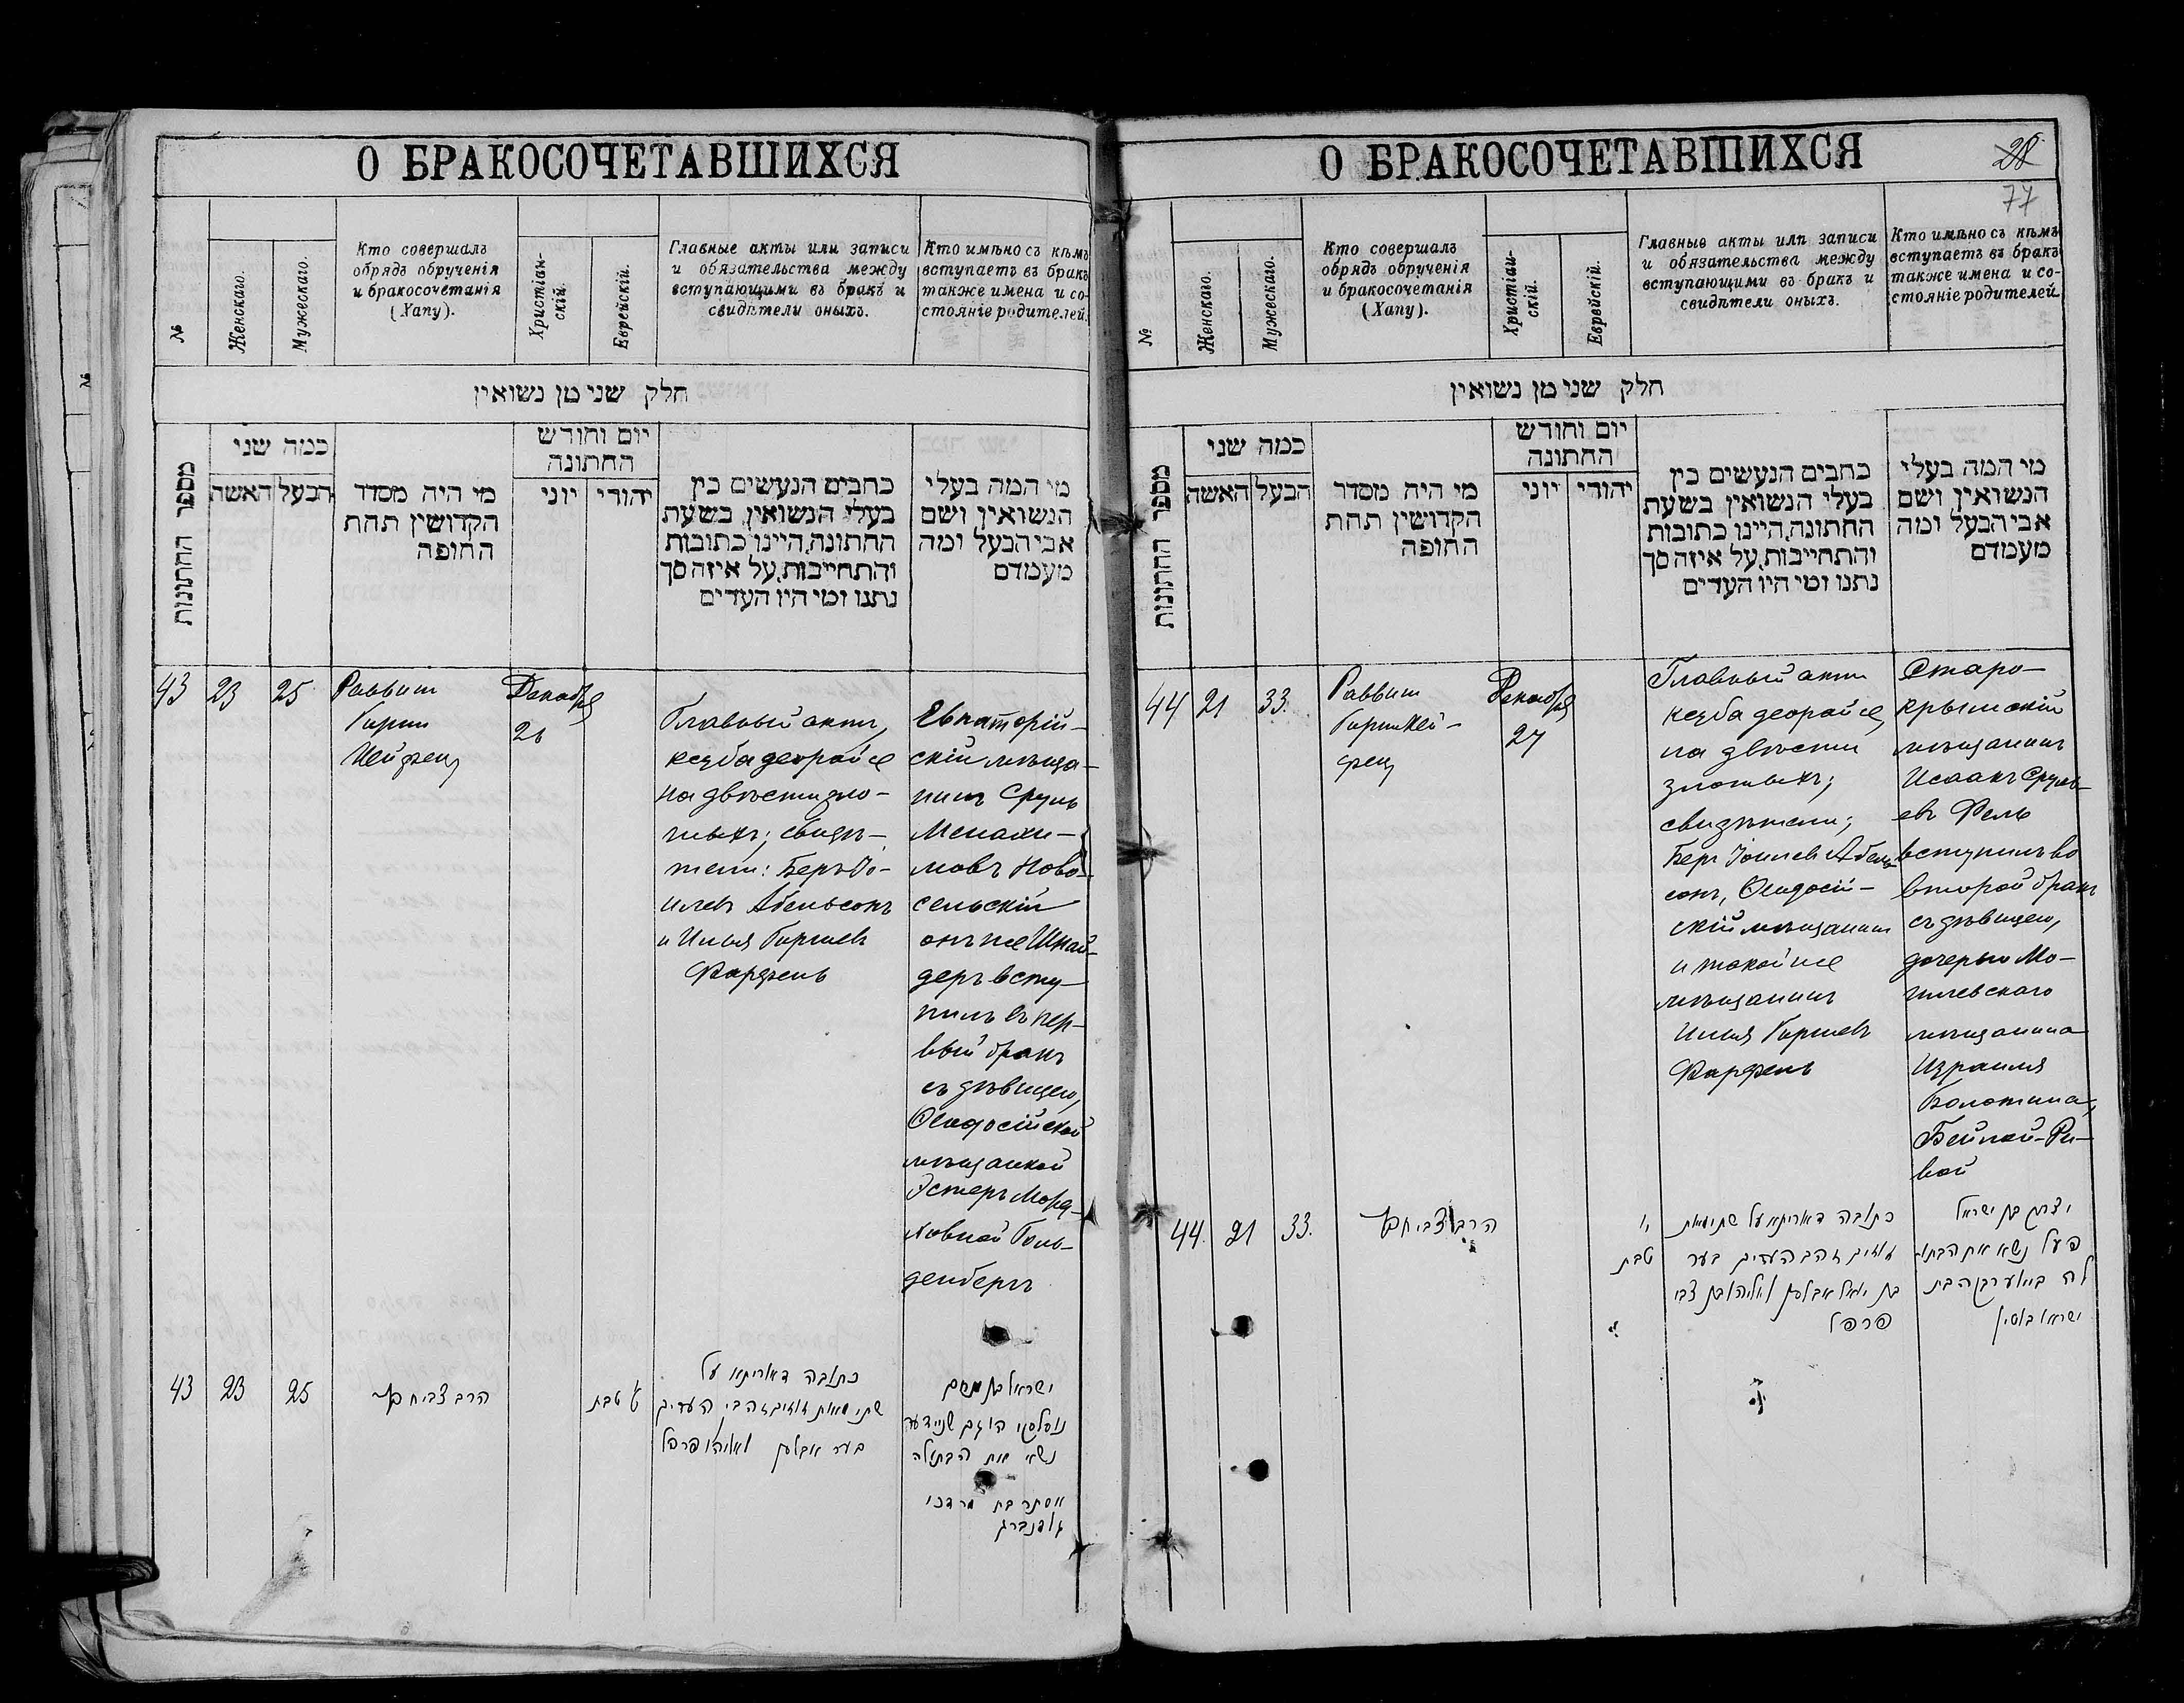 О БРАКОСОЧЕТАВШИХСЯ
№
Женскаго.
Мужескаго.
Кто совершалъ
обрядъ обрученія
и бракосочетанія
(Хапу).
Христіан-
скій.
Еврейскій.
Главные акты или записи
и обязательства между
вступающими въ бракъ и
свидѣтели оныхъ.
Кто имѣно съ кѣмъ
вступаетъ въ бракъ
также имена и со-
стояніе родителей.
חלק שני מן נשואין
מספר החתונות
כמה שני
הבעל
האשה
מי היה מסדר
הקדושין תחת
החופה
יום וחודש
החתונה
יהודי
יוני
כתבים הנעשים בין
בעלי הנשואין בשעת
החתונה, היינו כתובות
והתחייבות, על איזה סך
נתנו ומי היו העדים
מי המה בעלי
הנשואין ושם
אבי הבעל ומה
מעמדם
43
23
25
Раввин
Гирш
Хейфец
Декабря
26
Главный актъ,
ксуба деорайсе
на двѣсти зло-
тыхъ; свидѣ-
тели: Беръ Іо-
илев Абельсонъ
и Илья Гиршев
Фарфель
Евпаторій-
скій мѣща-
нинъ Сруль
Менахи-
мовъ Ново-
сельскій
онъ же Шнай-
деръ всту-
пилъ въ пер-
вый бракъ
съ дѣвицею,
Ѳеодосійской
мѣщанкой
Эстеръ Морд-
ховной Голь-
денбергъ
43
23
25
הרב צבי חפץ
ט טבת
כתובה דאוריתא על
שתי מאות זוזים זהבי העדים
בער אבלסן ואליהו פרפל
ישראל בן מנחם
נוסלסקי הוא גם שניידער
נשא את הבתולה
אסתר בת מרדכי
גולדנברג
О БРАКОСОЧЕТАВШИХСЯ
28
77
№
Женскаго.
Мужескаго.
Кто совершалъ
обрядъ обрученія
и бракосочетанія
(Хапу).
Христіан-
скій.
Еврейскій.
Главные акты или записи
и обязательства между
вступающими въ бракъ и
свидѣтели оныхъ.
Кто имѣно съ кѣмъ
вступаетъ въ бракъ
также имена и со-
стояніе родителей.
חלק שני מן נשואין
מספר החתונות
כמה שני
הבעל
האשה
מי היה מסדר
הקדושין תחת
החופה
יום וחודש
החתונה
יהודי
יוני
כתבים הנעשים בין
בעלי הנשואין בשעת
החתונה, היינו כתובות
והתחייבות, על איזה סך
נתנו ומי היו העדים
מי המה בעלי
הנשואין ושם
אבי הבעל ומה
מעמדם
44
21
33.
Раввин
Гирш Хей-
фец
Декабря
27
Главный актъ
ксуба деорайсе,
на двѣсти
злотыхъ;
свидѣтели;
Беръ Іоилев Абель-
сонъ, Ѳеодосій-
скій мѣщанин
и такой же
мѣщанинъ
Илья Гиршев
Фарфель
Старо-
крымскій
мѣщанинъ
Исаакъ Срулъ-
евъ Фель
вступилъ во
второй бракъ
съ дѣвицею,
дочерью Мо-
гилевскаго
мѣщанина
Израиля
Болотина,
Бейлой-Ри-
вой
44.
21
33.
הרב צבי חפץ
י׳
טבת
כתובה דאוריתא על שתי מאות
זוזים זהב העדים בער
בן יואל אבלסן ואליהו בן צבי
פרפל
יצחק בן ישראל
פעל נשא את הבתו
לה ביילע רבקה בת
ישראל